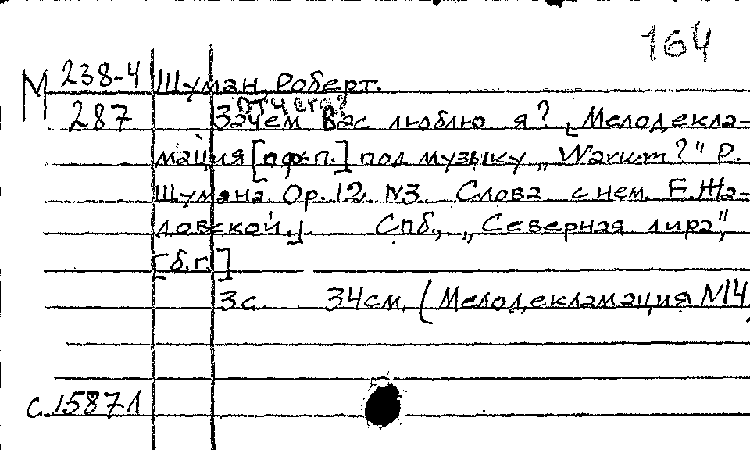 164
М 238-4 Шуман, Роберт.
отчего?
287 Зачем Вас люблю я? [Мелодекла-
мация [ф-п.] под музыку „Warum?" Р.
Шумана. Op. 12. N3. Слова с нем. Е. Жа-
довской.]. Спб., „Северная лира",
[б.г.]
3с. 34см. (Мелодекламация N14)
с.1587